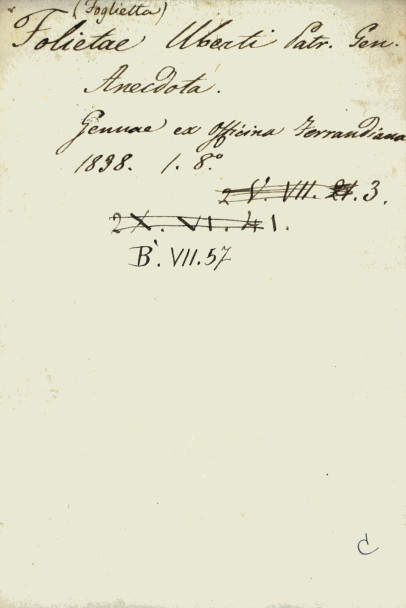 (Foglietta)
Folietae Uberti Patr. Gen.
Anecdota.
Genuae ex Officina Ferrandiana
1838. 1. 8.°
2 V. VII. 21. 3.
2 X. VI. 41.
B. VII. 57
C